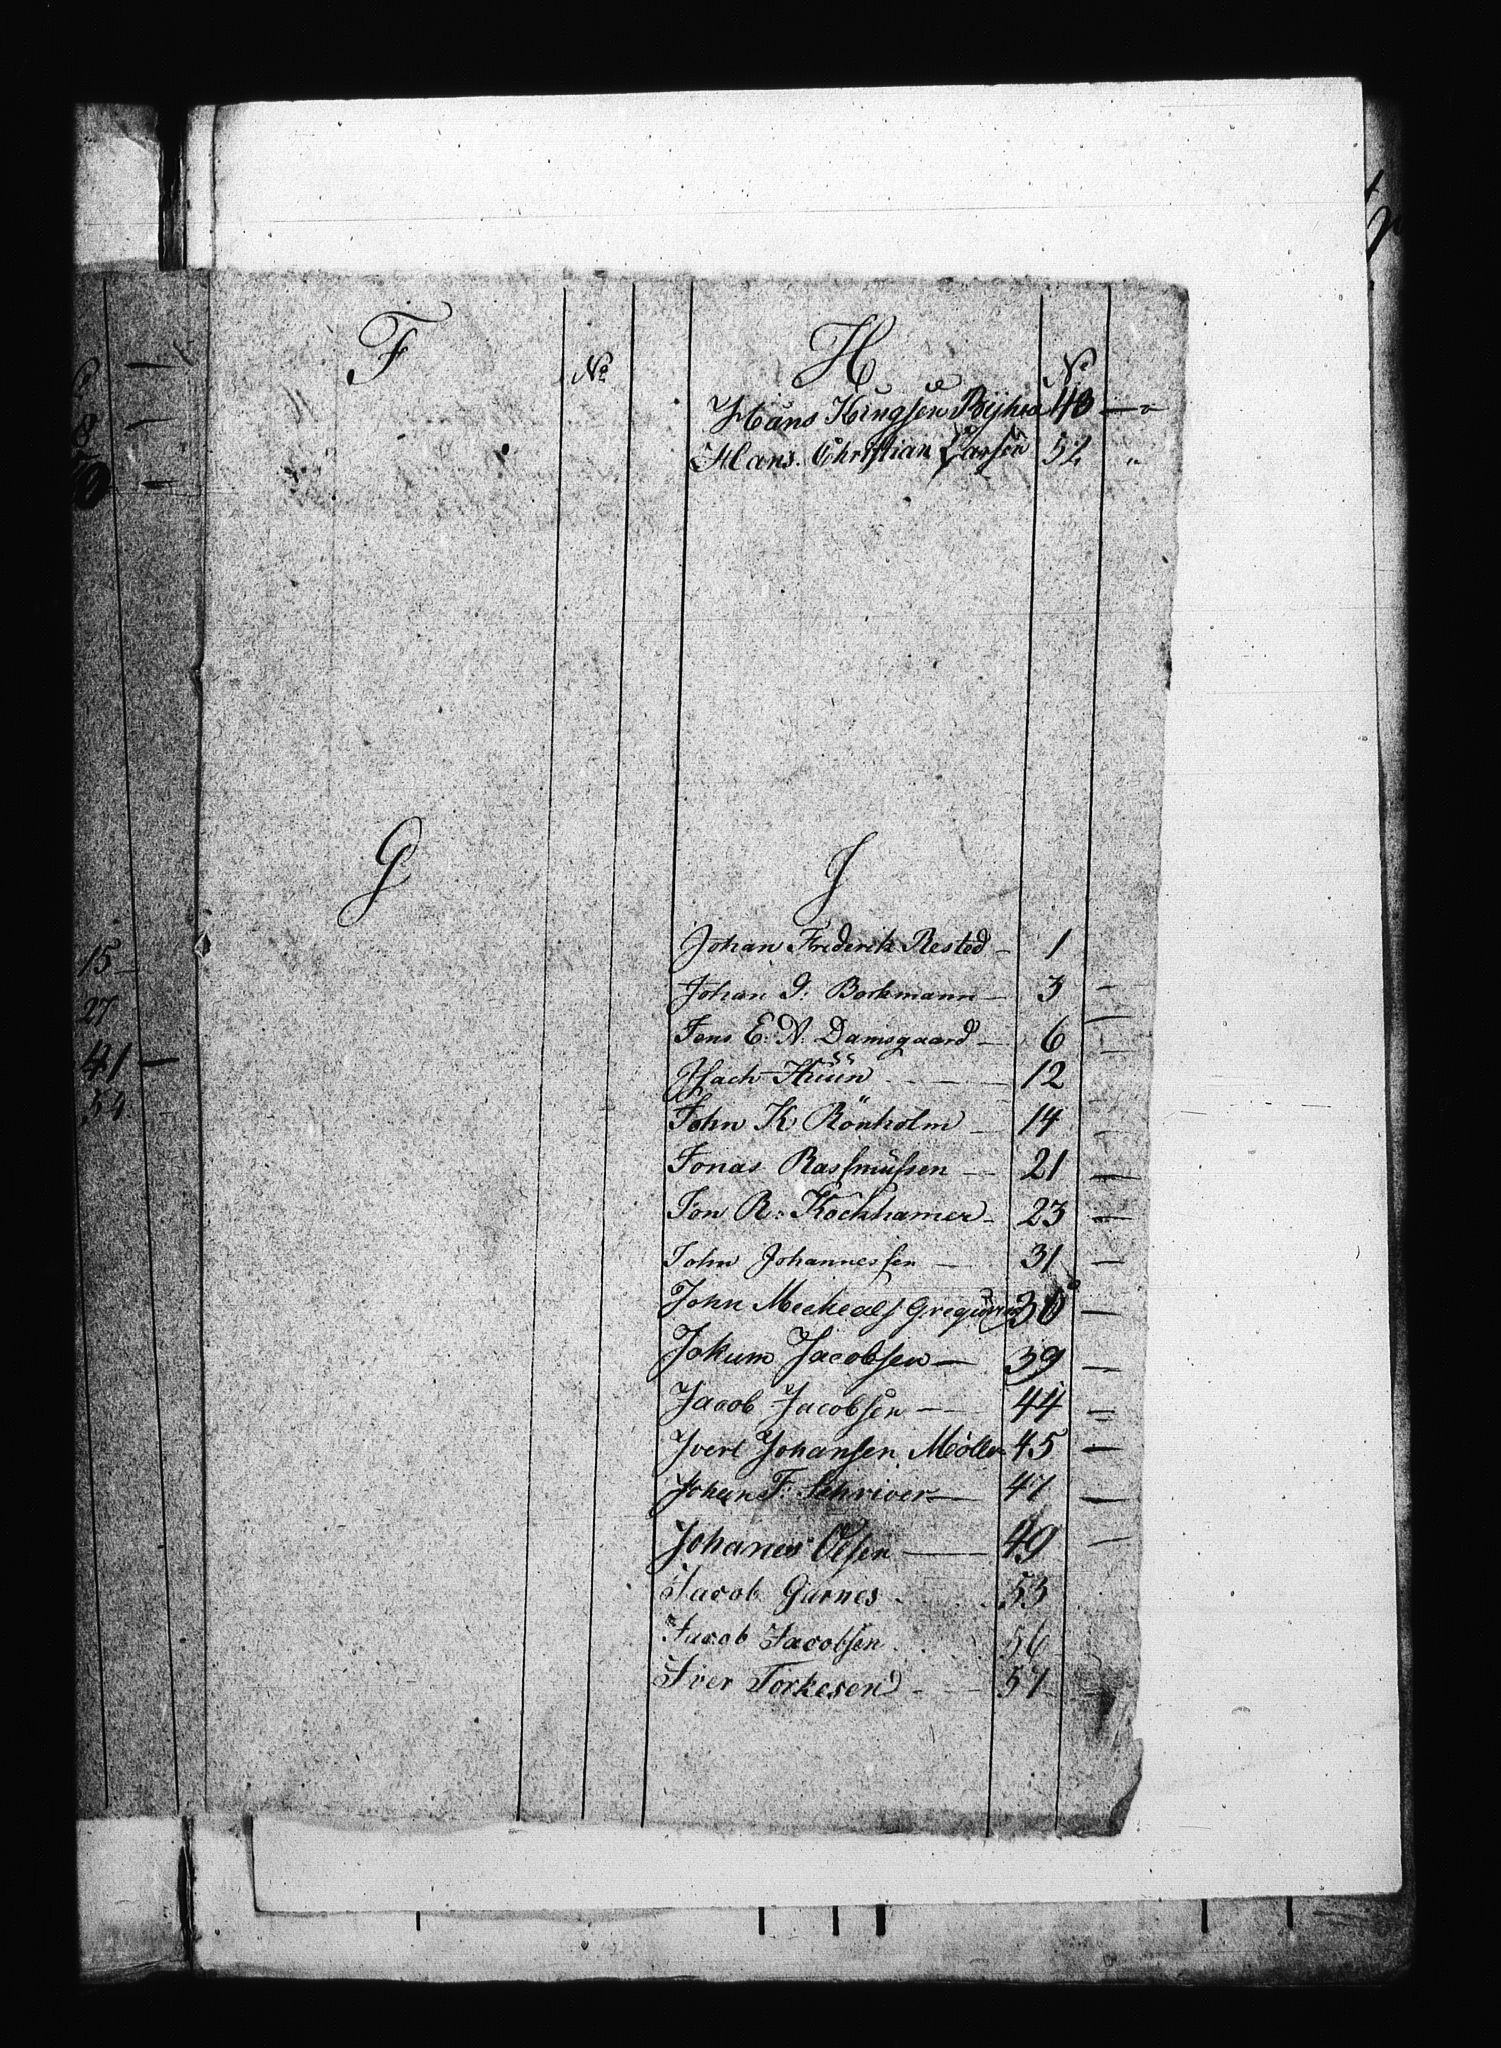 F
No
H
No
Hans Kingsen 48
Hans Christian Larsen 52 "
G
J
Johan Frederik Rested 1
Johan G: Bockmann 3
Jens E. N. Damsgaard 6
Isach Küün 12
John K Rönholm 14
Jonas Rassmüssen 21
Jon R: Kockhamer 23
John Johannessen 31
John Meckeals 36
Jokum Jacobsen 39
Jacob Jacobsen 44
Ivert Johansen Møller 45
Johan F: Schriver 47
Johanes Olsen 49
Jacob Garnes 53
Jacob Jacobsen 56
Iver Torkesen 57
8
15
27
41
54